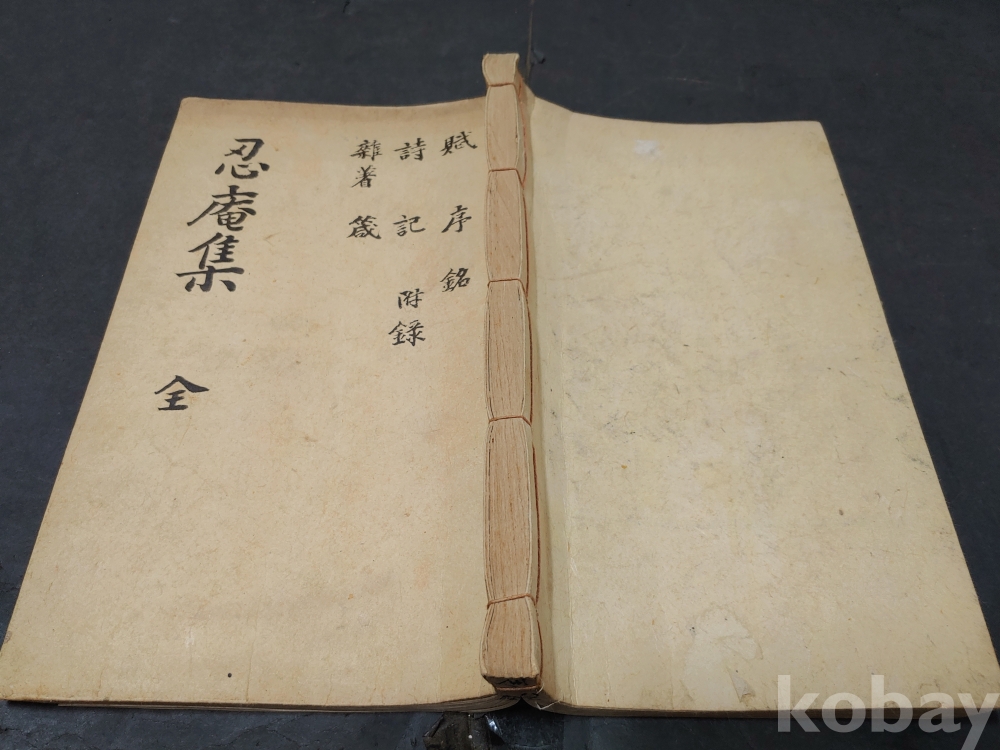 賦 序 銘
詩 記 附錄
雜著 箴
忍庵集 全
kobay